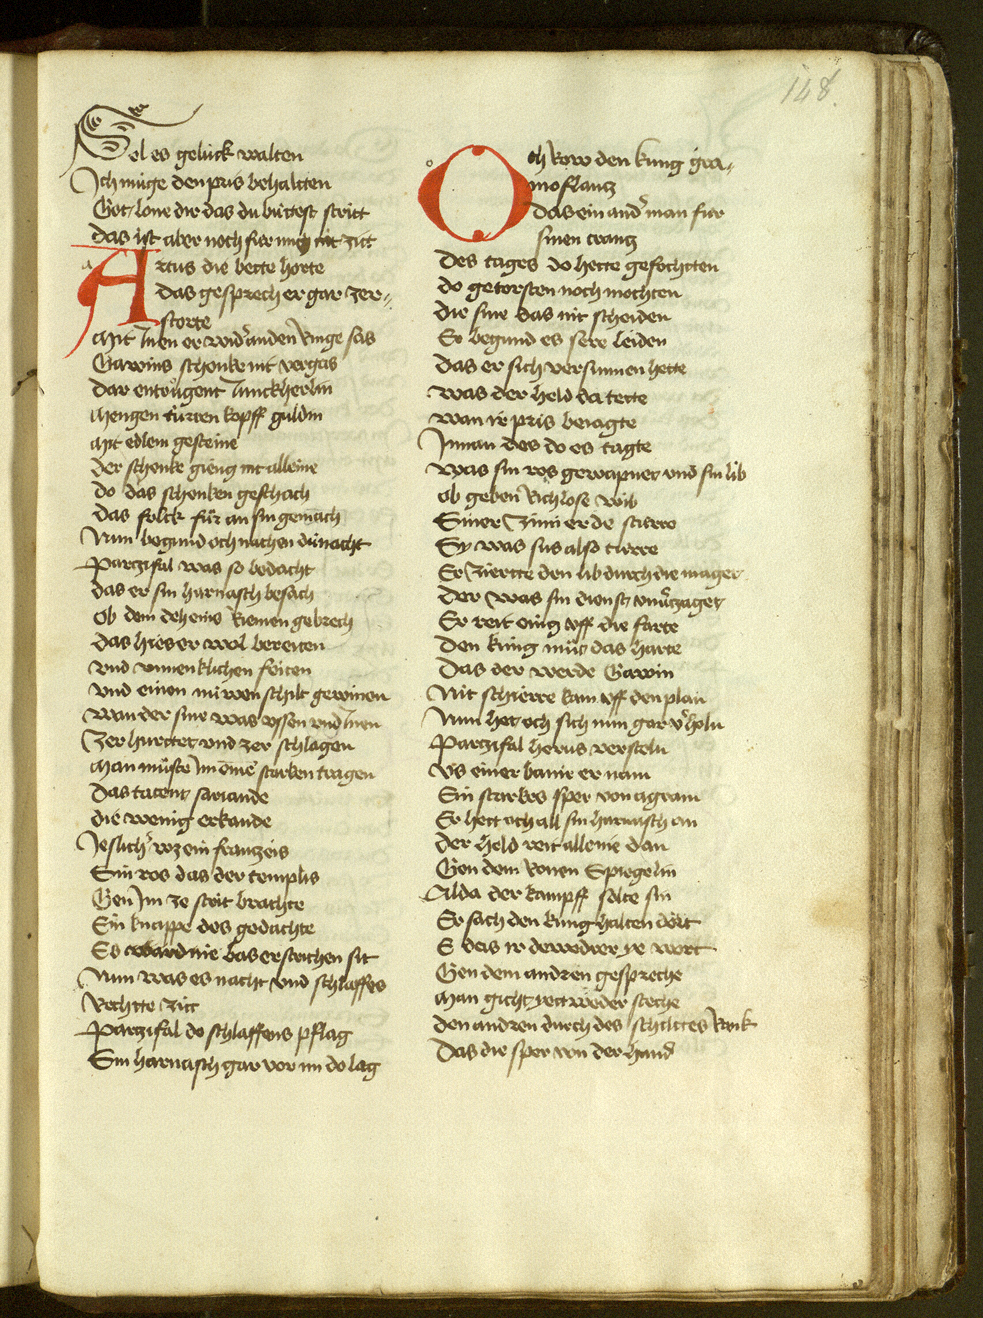 148.
Sel es gelück walten
Ich müge den pris behaltten
Got lone dir das du büttest stritt
das ist aber noch fúr mich nit zitt
a
Artus die bette horte
das gesprech er gar zer-
storte
Mit Inen er wider an den Ringe sas
Gawins schenke nit vergas
dar entrůgent Junckherlin
Mengen túrren kopff guldin
Mit edlem gesteine
der schenke gieng nit alleine
do das schenken geschach
das folck für an sin gemach
Nun begund och nachen dü nacht
Parzifal was so bedacht
das er sin harnasch besach
ob dem deheins Riemen gebrech
das hies er wol bereiten
vnd minenklichen feiten
vnd einen núwen schilt gewinen
wan der sine was vssen vnd Inen
Zerhurttet vnd zerschlagen
Man müste Im eine starken tragen
das tatent sariande
die wenig erkande
Jeslicher wz ein franzeis
Sin ros das der templis
Gen Im ze strit brachte
Ein knappe des gedachte
Es ward nie bas erstrichen sit
Nun was es nacht vnd schlaffes
Rechtte zitt
Parzifal do schlaffens pflag
Sin harnasch gar vor im do lag
o
Och Row den kung gra-
moflantz
das ein ander man fúr
sinen crantz
des tages do hette gefochtten
do getorsten noch mochten
die sine das nit scheiden
Er begund es sere leiden
das er sich versummen hette
was der held da tette
wan er pris beiagte
Innan des do es tagte
was sin ros gewapnet vnd sin lib
ob geben Richlose wib
Siner Zimierde stúrre
Sy was sus also túrre
Er Ziertte den lib durch die maget
Der was sin dienst vnuerzaget
Er reit einig vff die farte
Den kung műt das harte
Das der werde Gawin
Nit schierre kam vff den plan
Nun het och sich nun gar verholn
Parzifal herus versteln
Vs einer banir er nam
Ein starkes sper von agram
Er hett och all sin harnasch an
der held reit alleine dan
Gen dem Ronen Spiegelin
Alda der kampff solte sin
Er sach den kung halten dört
E das ir dewedrer ye wort
Gen dem andren gespreche
Man gicht yettweder steche
den andren durch des schilttes Rank
Das die sper von der hand